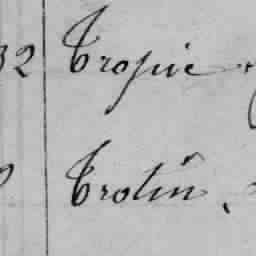 32 Tropie
Trotin